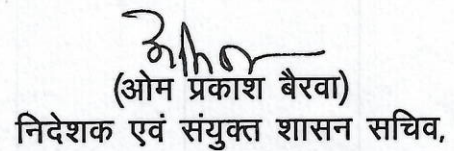 (ओम प्रकाश बैरवा)
निदेशक एवं संयुक्त शासन सचिव,